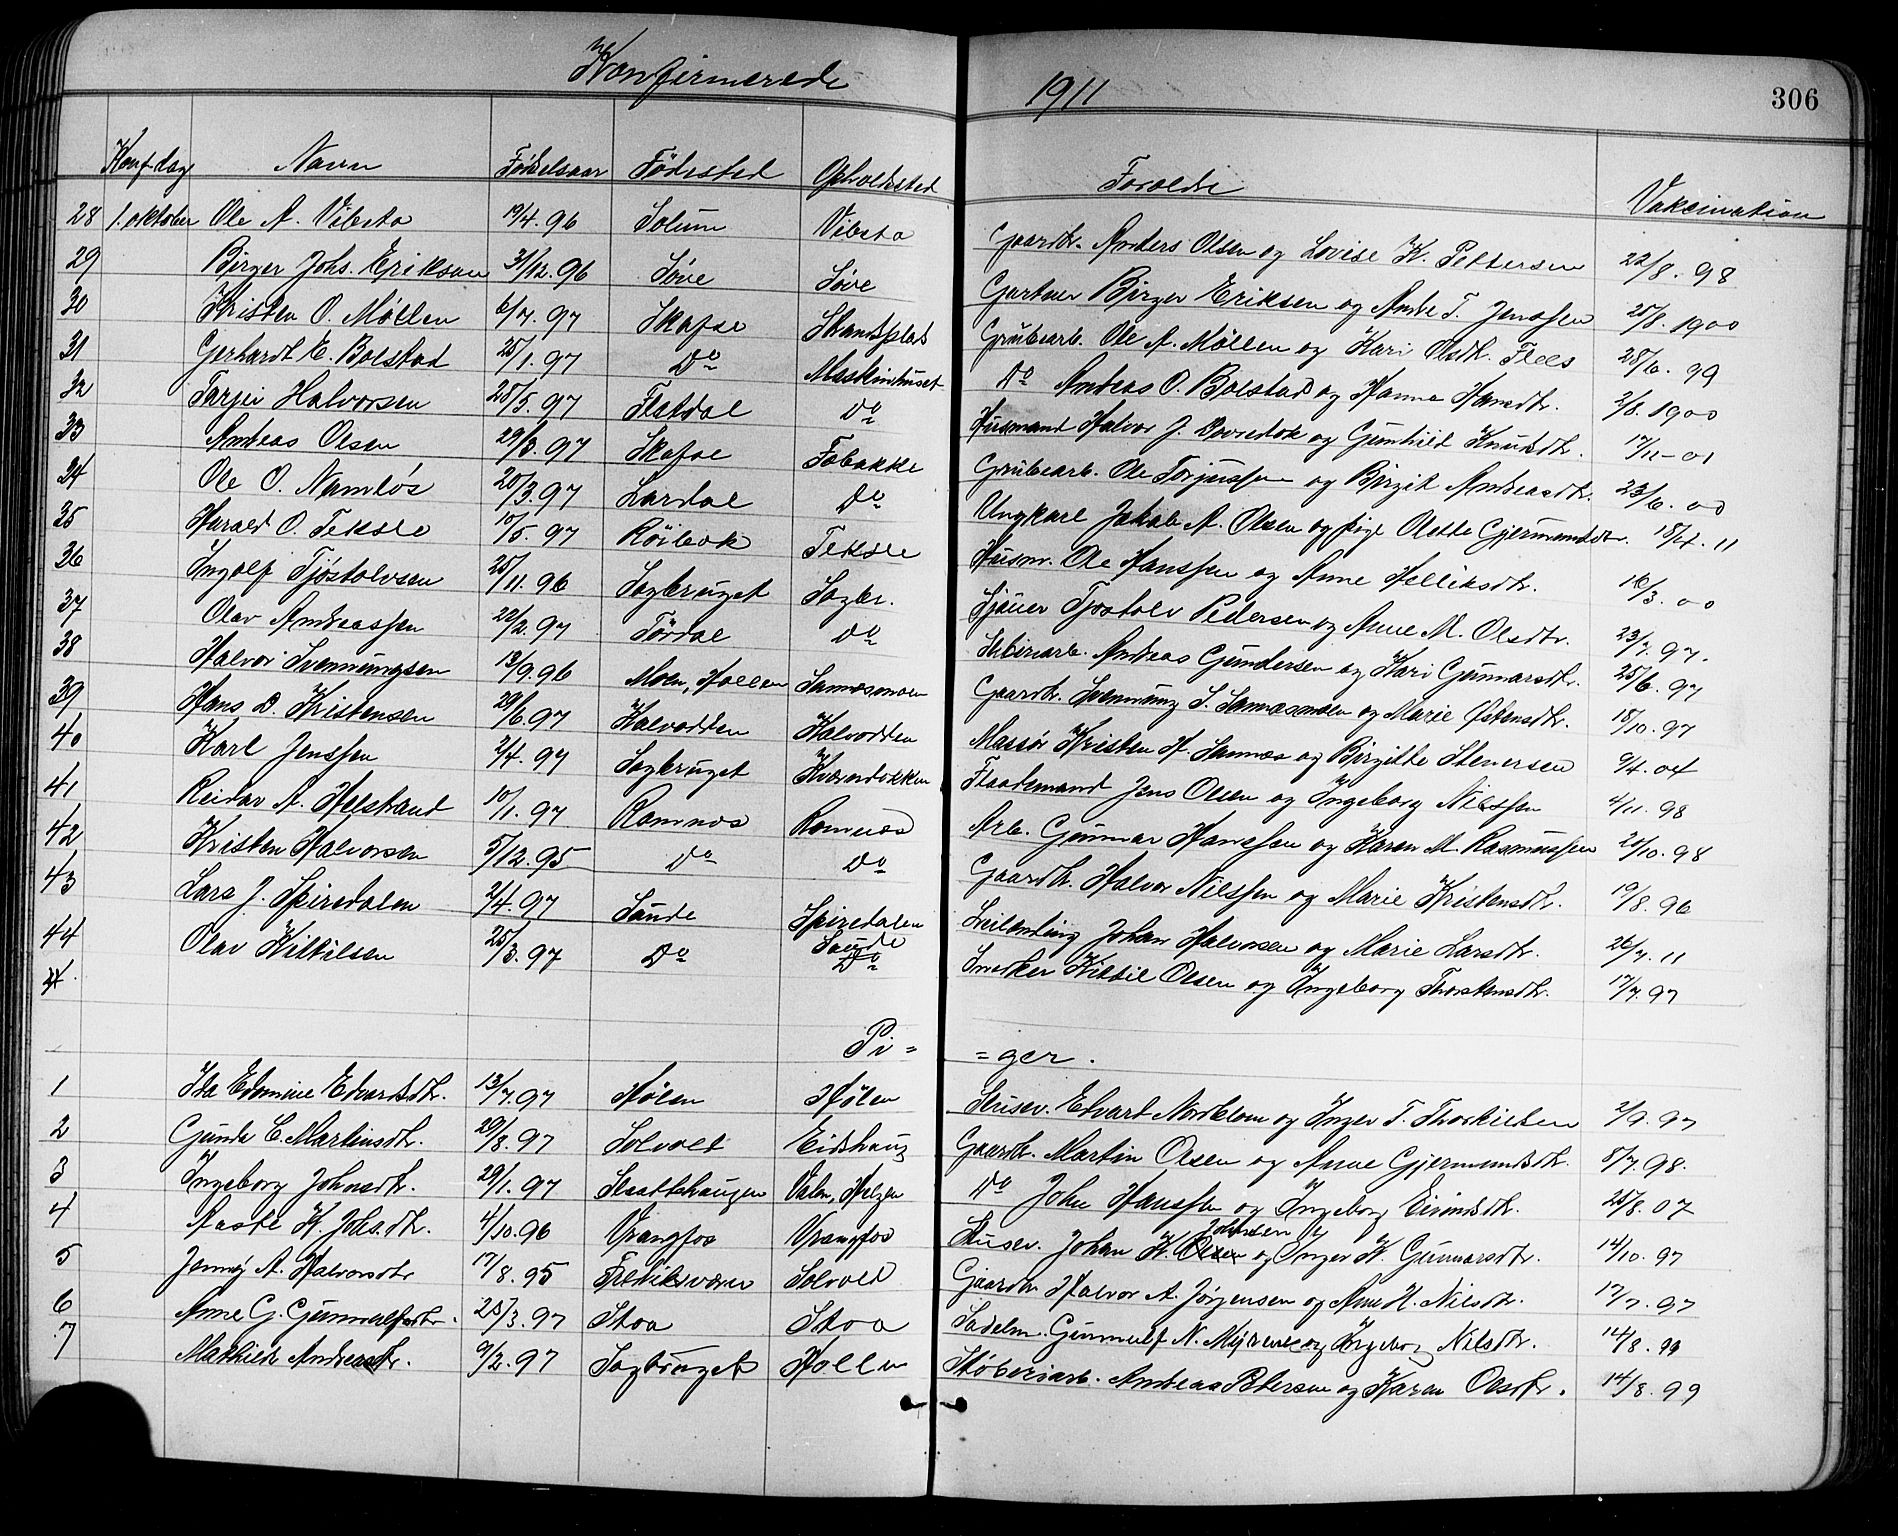 Konfirmerede 1911 306
Konf.dag Navn Fødselsaar Fødested Opholdssted Forældre Vakcination
28 1. oktober Ole A. Vibeto 19/4. 96 Solum Vibeto Gaardbr. Anders Olsen og Lovise K. Pettersen 22/8. 98
29 Birger Johs. Eriksen 31/12. 96 Søve Søve Gartner Birger Eriksen og Andre T. Jenssen 25/8. 1900
30 Kristen O. Møllen 6/7. 97 Skafse Strandsplads Grubearb. Ole A. Møllen og Kari Olsdtr. Flees 28/6. 99
31 Gerhardt E. Bolstad 25/1. 97 Do Maskinhuset Do Andreas O. Bolstad og Hanna Hansdtr. 2/8. 1900
32 Tarjei Halvorsen 25/5. 97 Flatdal Do Husmand Halvor J. og Gunhild Knutsdtr. 17/11-01
33 Andreas Olsen 29/3. 97 Skafse Fobakke Grubearb. Ole Torjussen og Birgit Andreasdtr. 23/6. 00
34 Ole O. Namløs 20/3. 97 Lardal Do Ungkarl Jakob A. Olsen og pige Olette Gjermundsdtr. 18/4. 11
35 Harald O. Teksle 10/5. 97 Teksle Husm. Ole Hanssen og Anne Helliksdtr. 16/3. 00
36 Ingolf Tjøstolvsen 25/11. 96 Sagbruget Sagbr. Sjauer Tjøstolv Pedersen og Anne M. Olsdtr. 23/7. 97.
37 Olav Andreassen 22/2. 97 Tørdal Do Støberiarb. Andreas Gundersen og Kari Gunnarsdtr. 25/6. 97
38 Halvor Svennungsen 13/9. 96 Moen, Hollen Sannæsmoen Gaardbr. Svennung S. Sannæsmoen og Marie Østensdtr. 18/10. 97
39 Hans D. Kristensen 29/6. 97 Kalvodden Kalvodden Massør Kristen H. Sannæs og Birgitte Stenersen 9/4. 04
40 Karl Jenssen 2/4. 97 Sagbruget Kværndokken Flaademand Jens Olsen og Ingeborg Nilssen 4/11. 98
41 Reidar A. Helstrand 10/1. 97 Romnes Romnæs Arb. Gunnar Hanssen og Karen M. Rasmussen 20/10. 98
42 Kristen Halvorsen 5/12. 95 Do Do Gaardbr. Halvor Nilssen og Marie Kristensdtr. 19/8. 96
43 Lars J. Spiredalen 2/4. 97 Saude Spiredalen Saude Leilending Johan Halvorsen og Marie Larsdtr. 26/7. 11
44 Olav Kittilsen 25/3. 97 Do Do Snekker Kittil Olsen og Ingeborg Thorstensdtr. 17/7. 97
Pi= =ger.
1 Ida Edomine Edvardsdtr. 13/7. 97 Hølen Hølen Slusev. Edvart Nordblom og Inger T. Thorkilsen 2/9. 97
2 Gunda C. Martinsdtr. 29/8. 97 Solvold Eidshaug Gaardbr. Martin Olsen og Anne Gjermundsdtr. 8/7. 98.
3 Ingeborg Johnsdtr. 29/1. 97 Slaattehaugen Valen, Helgen Do John Hanssen og Ingeborg Eivindsdtr. 25/8. 07
4 Aaste K. Johsdtr. 4/10. 96 Vrangfos Vrangfos Slusev. Johan K. Olsen Johnsen og Inger K. Gunnarsdtr. 14/10. 97
5 Jenny A. Halvorsdtr 17/8. 95 Fredriksværn Solvold Gaardbr Halvor A. Jørgensen og Ane H. Nilsdtr. 17/7. 97
6 Anne G. Gunnulfsdtr. 25/3. 97 Stoa Stoa Sadelm. Gunnulf N. Myrene og Ingeborg Nilsdtr. 14/8. 99
7 Mathilde Andreasdtr. 9/2. 97 Sagbruget Hollen Støberiarb. Andreas Petersen og Karen Olsdtr. 14/8. 99